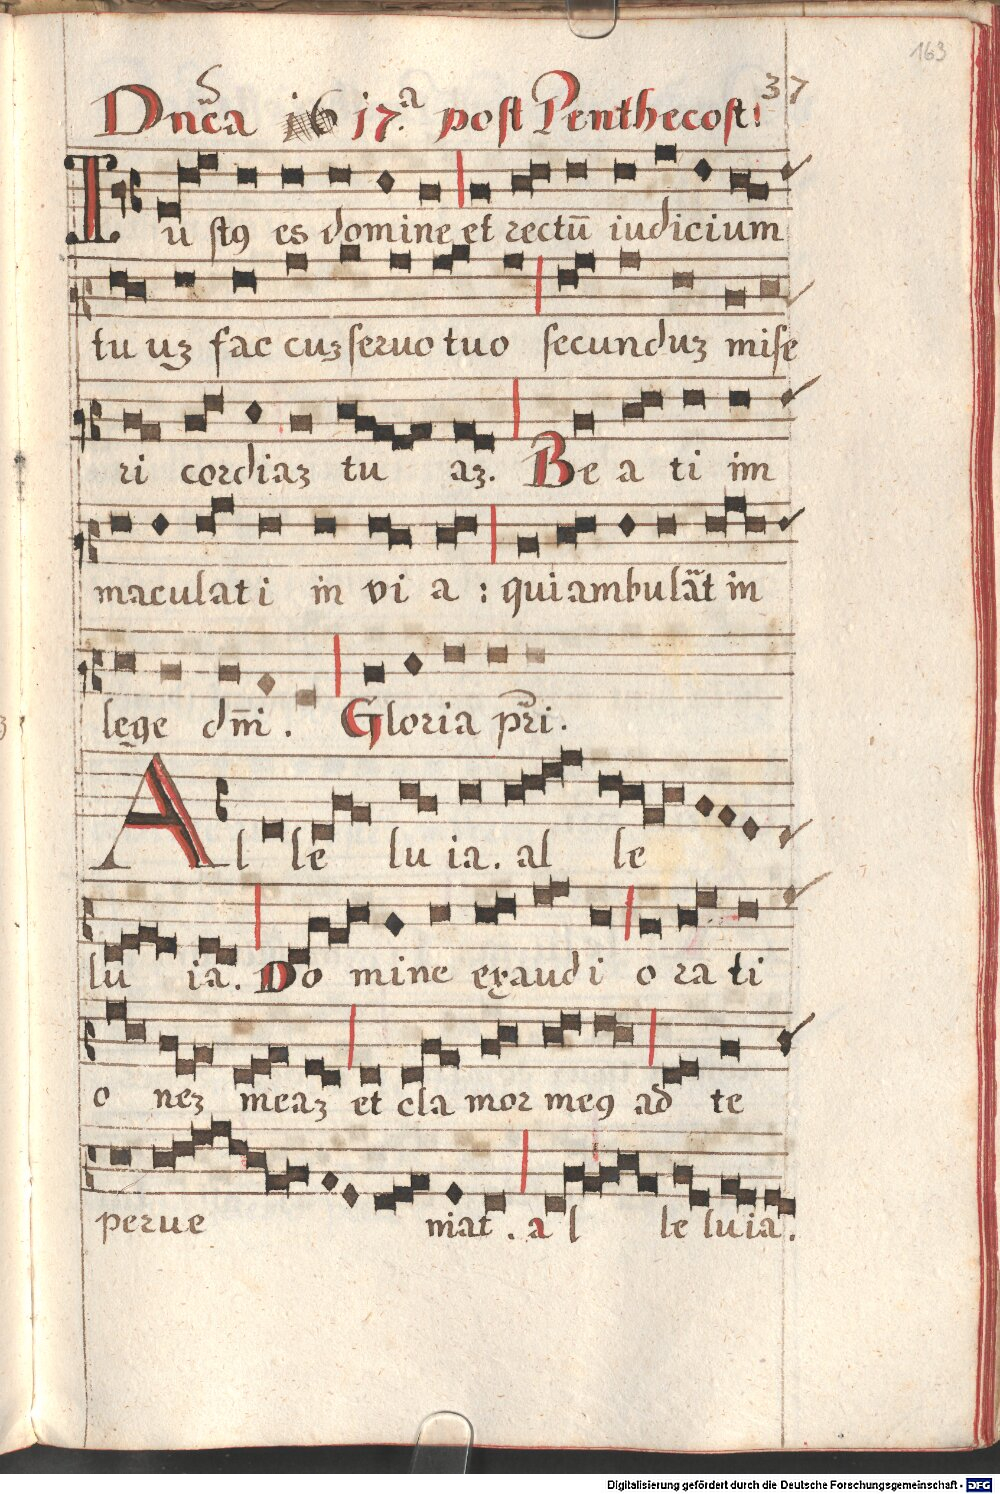 163
37
Dnīca 16 17.a post Penthecost:
Iu stꝯ es domine et rectū iudicium
tu uʒ fac cuʒ seruo tuo secunduʒ mise
ri cordiaʒ tu aʒ. Be a ti im
maculati in vi a : qui ambulāt in
lege dm̄i. Gloria pr̄i.
Al le lu ia. al le
lu ia. Do mine exaudi o ra ti
o neʒ meaʒ et cla mor meꝯ ad te
perue niat. a l le luia.
Digitalisierung gefördert durch die Deutsche Forschungsgemeinschaft - DFG